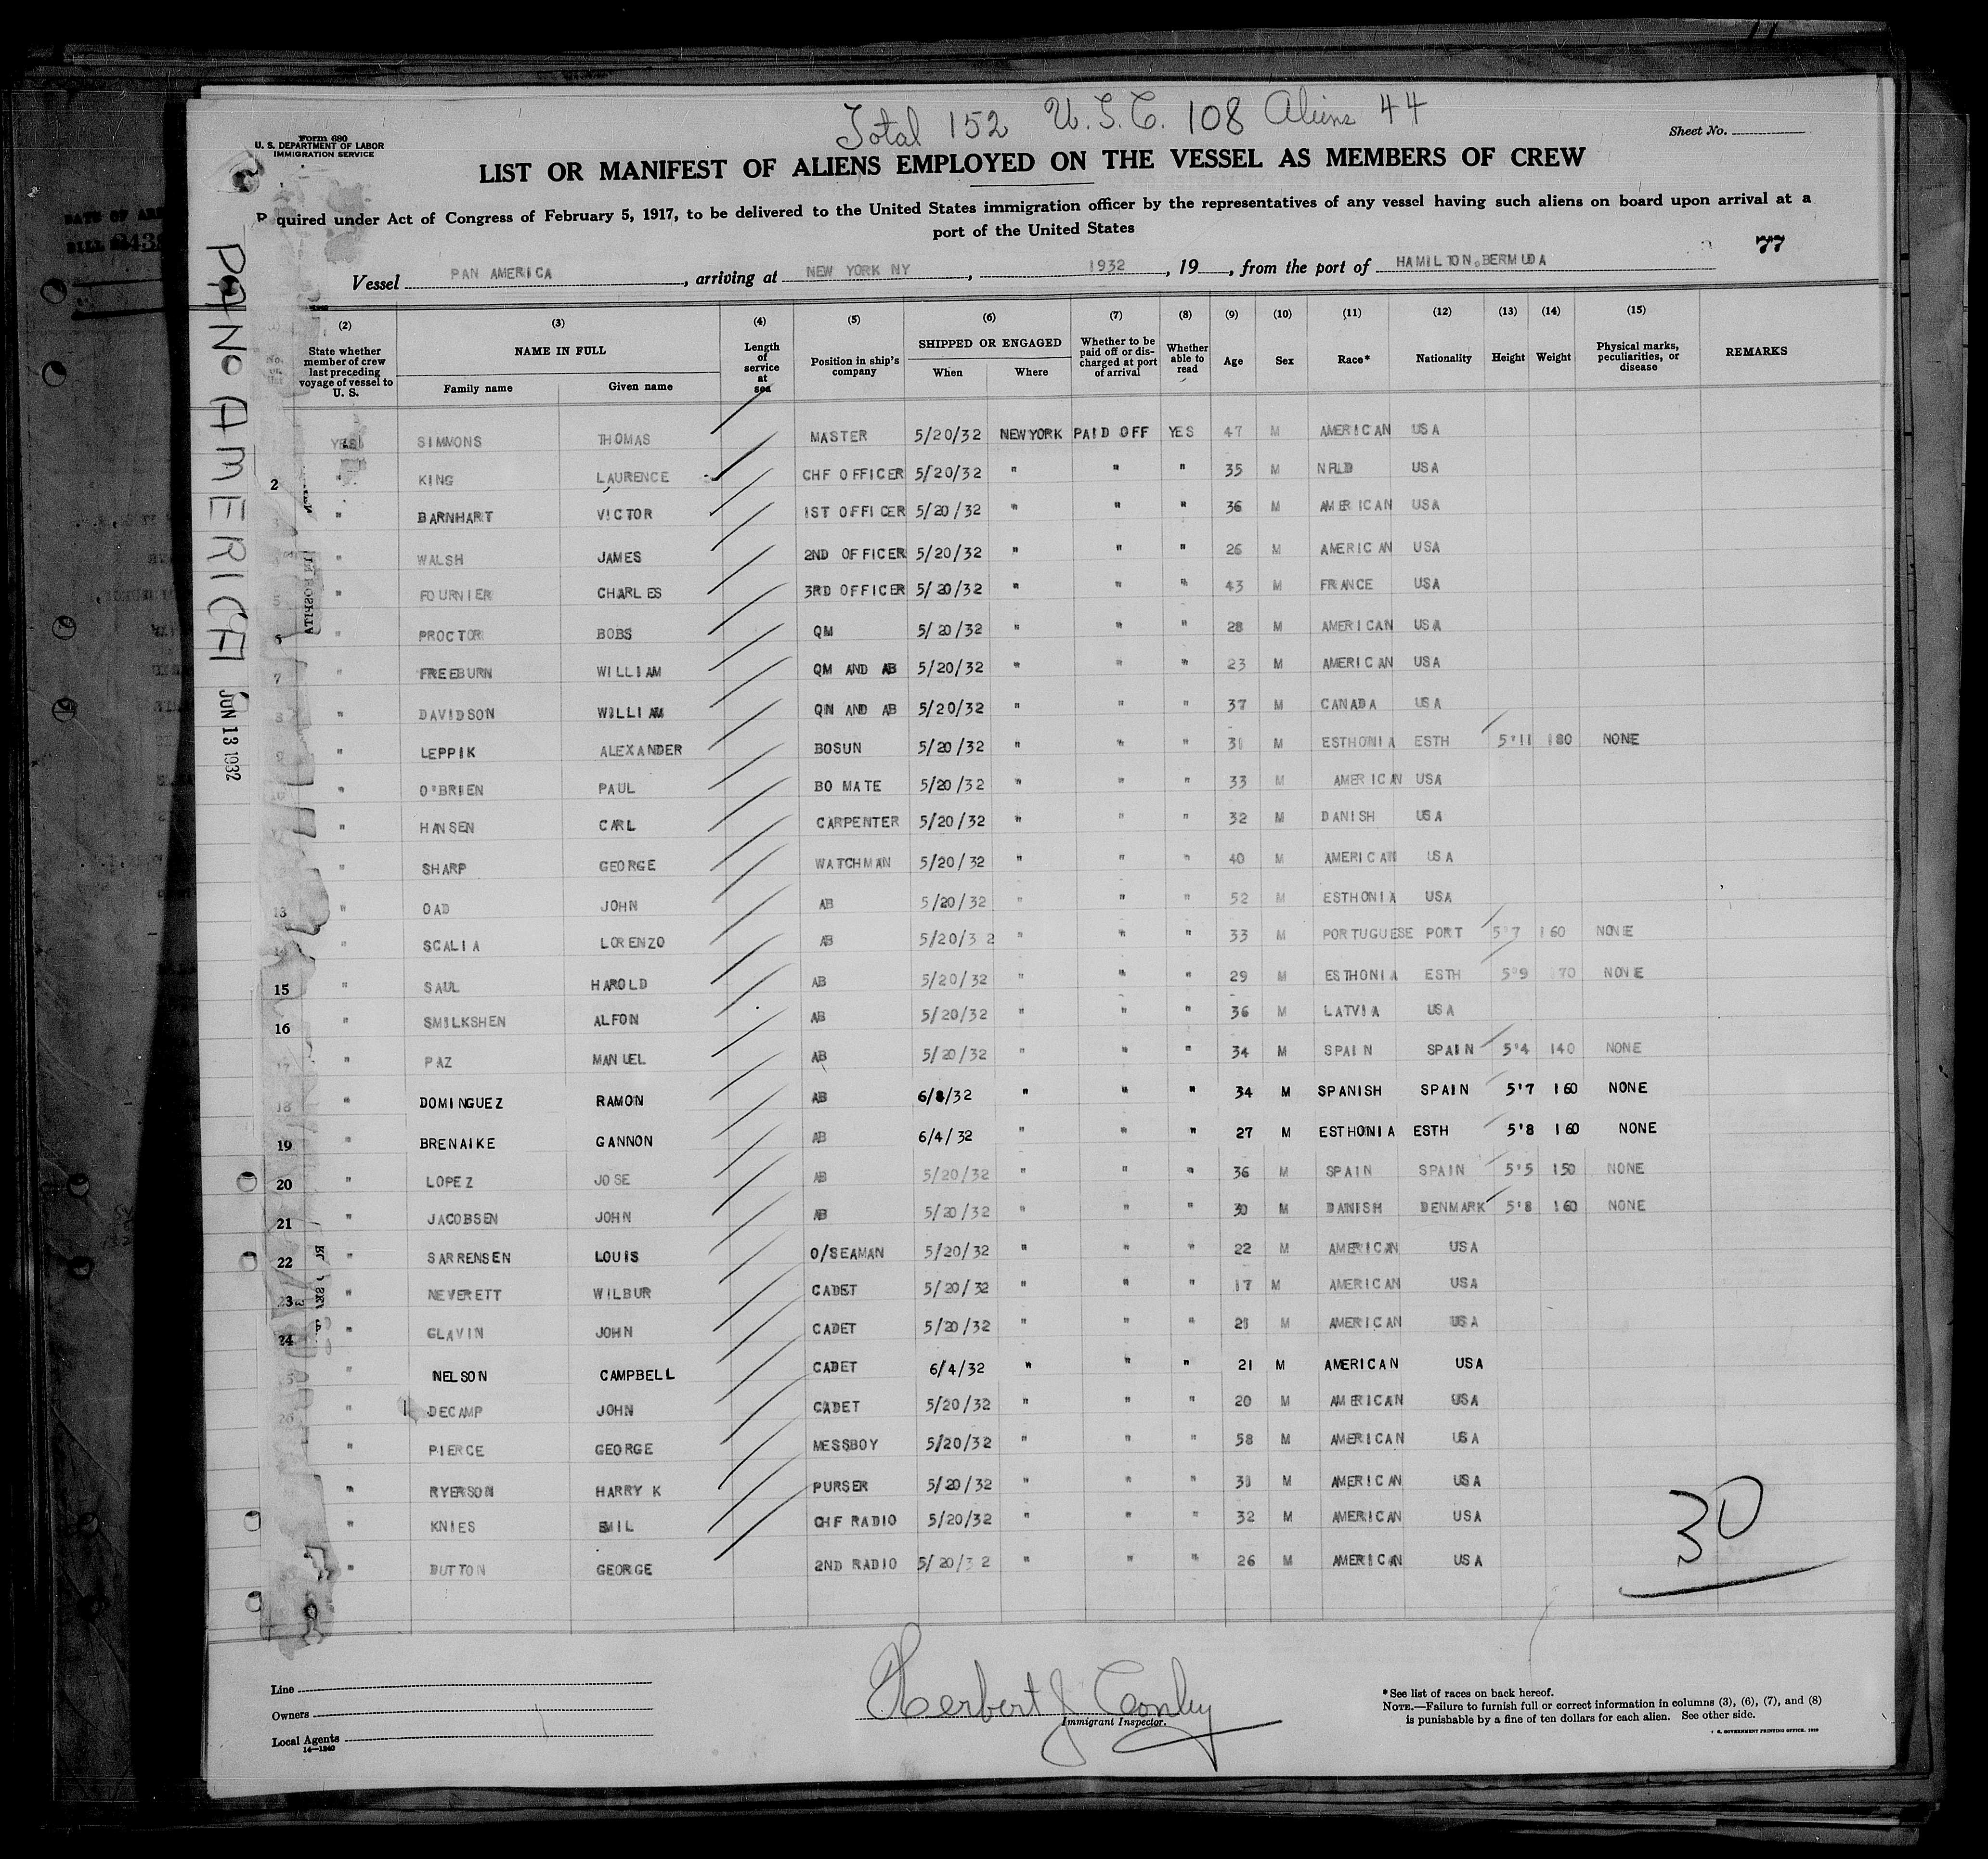 Total 152 U.S.C. 108 Aliens 44
Form 680
U. S. DEPARTMENT OF LABOR
IMMIGRATION SERVICE
Sheet No.
LIST OR MANIFEST OF ALIENS EMPLOYED ON THE VESSEL AS MEMBERS OF CREW
quired under Act of Congress of February 5, 1917, to be delivered to the United States immigration officer by the representatives of any vessel having such aliens on board upon arrival at a
port of the United States
77
Vessel PAN AMERICA, arriving at NEW YORK NY, 1932, 19, from the port of HAMILTON.BERMUDA
PAN AMERICA JUN 13 1932
(2) (3) (4) (5) (6) (7) (8) (9) (10) (11) (12) (13) (14) (15)
State whether member of crew last preceding voyage of vessel to U. S. NAME IN FULL Family name Given name Length of service at sea Position in ship's company SHIPPED OR ENGAGED When Where Whether to be paid off or discharged at port of arrival Whether able to read Age Sex Race* Nationality Height Weight Physical marks, peculiarities, or disease REMARKS
YES SIMMONS THOMAS MASTER 5/20/32 NEWYORK PAID OFF YES 47 M AMERICAN USA
2 " KING LAURENCE CHF OFFICER 5/20/32 " " " 35 M NFLD USA
" BARNHART VICTOR 1ST OFFICER 5/20/32 " " " 36 M AMERICAN USA
" WALSH JAMES 2ND OFFICER 5/20/32 " " " 26 M AMERICAN USA
5 " FOURNIER CHARLES 3RD OFFICER 5/20/32 " " " 43 M FRANCE USA
6 " PROCTOR BOBS QM 5/20/32 " " " 28 M AMERICAN USA
7 " FREEBURN WILLIAM QM AND AB 5/20/32 " " " 23 M AMERICAN USA
8 " DAVIDSON WILLIAM QM AND AB 5/20/32 " " " 37 M CANADA USA
9 " LEPPIK ALEXANDER BOSUN 5/20/32 " " " 31 M ESTHONIA ESTH 5'11 180 NONE
10 " O'BRIEN PAUL BO MATE 5/20/32 " " " 33 M AMERICAN USA
" HANSEN CARL CARPENTER 5/20/32 " " " 32 M DANISH USA
" SHARP GEORGE WATCHMAN 5/20/32 " " " 40 M AMERICAN USA
13 " OAD JOHN AB 5/20/32 " " " 52 M ESTHONIA USA
" SCALIA LORENZO AB 5/20/32 " " " 33 M PORTUGUESE PORT 5'7 160 NONE
15 " SAUL HAROLD AB 5/20/32 " " " 29 M ESTHONIA ESTH 5'9 170 NONE
16 " SMILKSHEN ALFON AB 5/20/32 " " " 36 M LATVIA USA
17 " PAZ MANUEL AB 5/20/32 " " " 34 M SPAIN SPAIN 5'4 140 NONE
18 " DOMINGUEZ RAMON AB 6/8/32 " " " 34 M SPANISH SPAIN 5'7 160 NONE
19 " BRENAIKE GANNON AB 6/4/32 " " " 27 M ESTHONIA ESTH 5'8 160 NONE
20 " LOPEZ JOSE AB 5/20/32 " " " 36 M SPAIN SPAIN 5'5 150 NONE
21 " JACOBSEN JOHN AB 5/20/32 " " " 30 M DANISH DENMARK 5'8 160 NONE
22 " SARRENSEN LOUIS O/SEAMAN 5/20/32 " " " 22 M AMERICAN USA
23 " NEVERETT WILBUR CADET 5/20/32 " " " 17 M AMERICAN USA
24 " GLAVIN JOHN CADET 5/20/32 " " " 21 M AMERICAN USA
" NELSON CAMPBELL CADET 6/4/32 " " " 21 M AMERICAN USA
26 " DECAMP JOHN CADET 5/20/32 " " " 20 M AMERICAN USA
" PIERCE GEORGE MESSBOY 5/20/32 " " " 58 M AMERICAN USA
" RYERSON HARRY K PURSER 5/20/32 " " " 31 M AMERICAN USA
" KNIES EMIL CHF RADIO 5/20/32 " " " 32 M AMERICAN USA
" BUTTON GEORGE 2ND RADIO 5/20/32 " " " 26 M AMERICAN USA
30
Line
Owners
Local Agents
14—1240
Herbert J Conley
Immigrant Inspector.
*See list of races on back hereof.
NOTE.—Failure to furnish full or correct information in columns (3), (6), (7), and (8)
is punishable by a fine of ten dollars for each alien. See other side.
GOVERNMENT PRINTING OFFICE